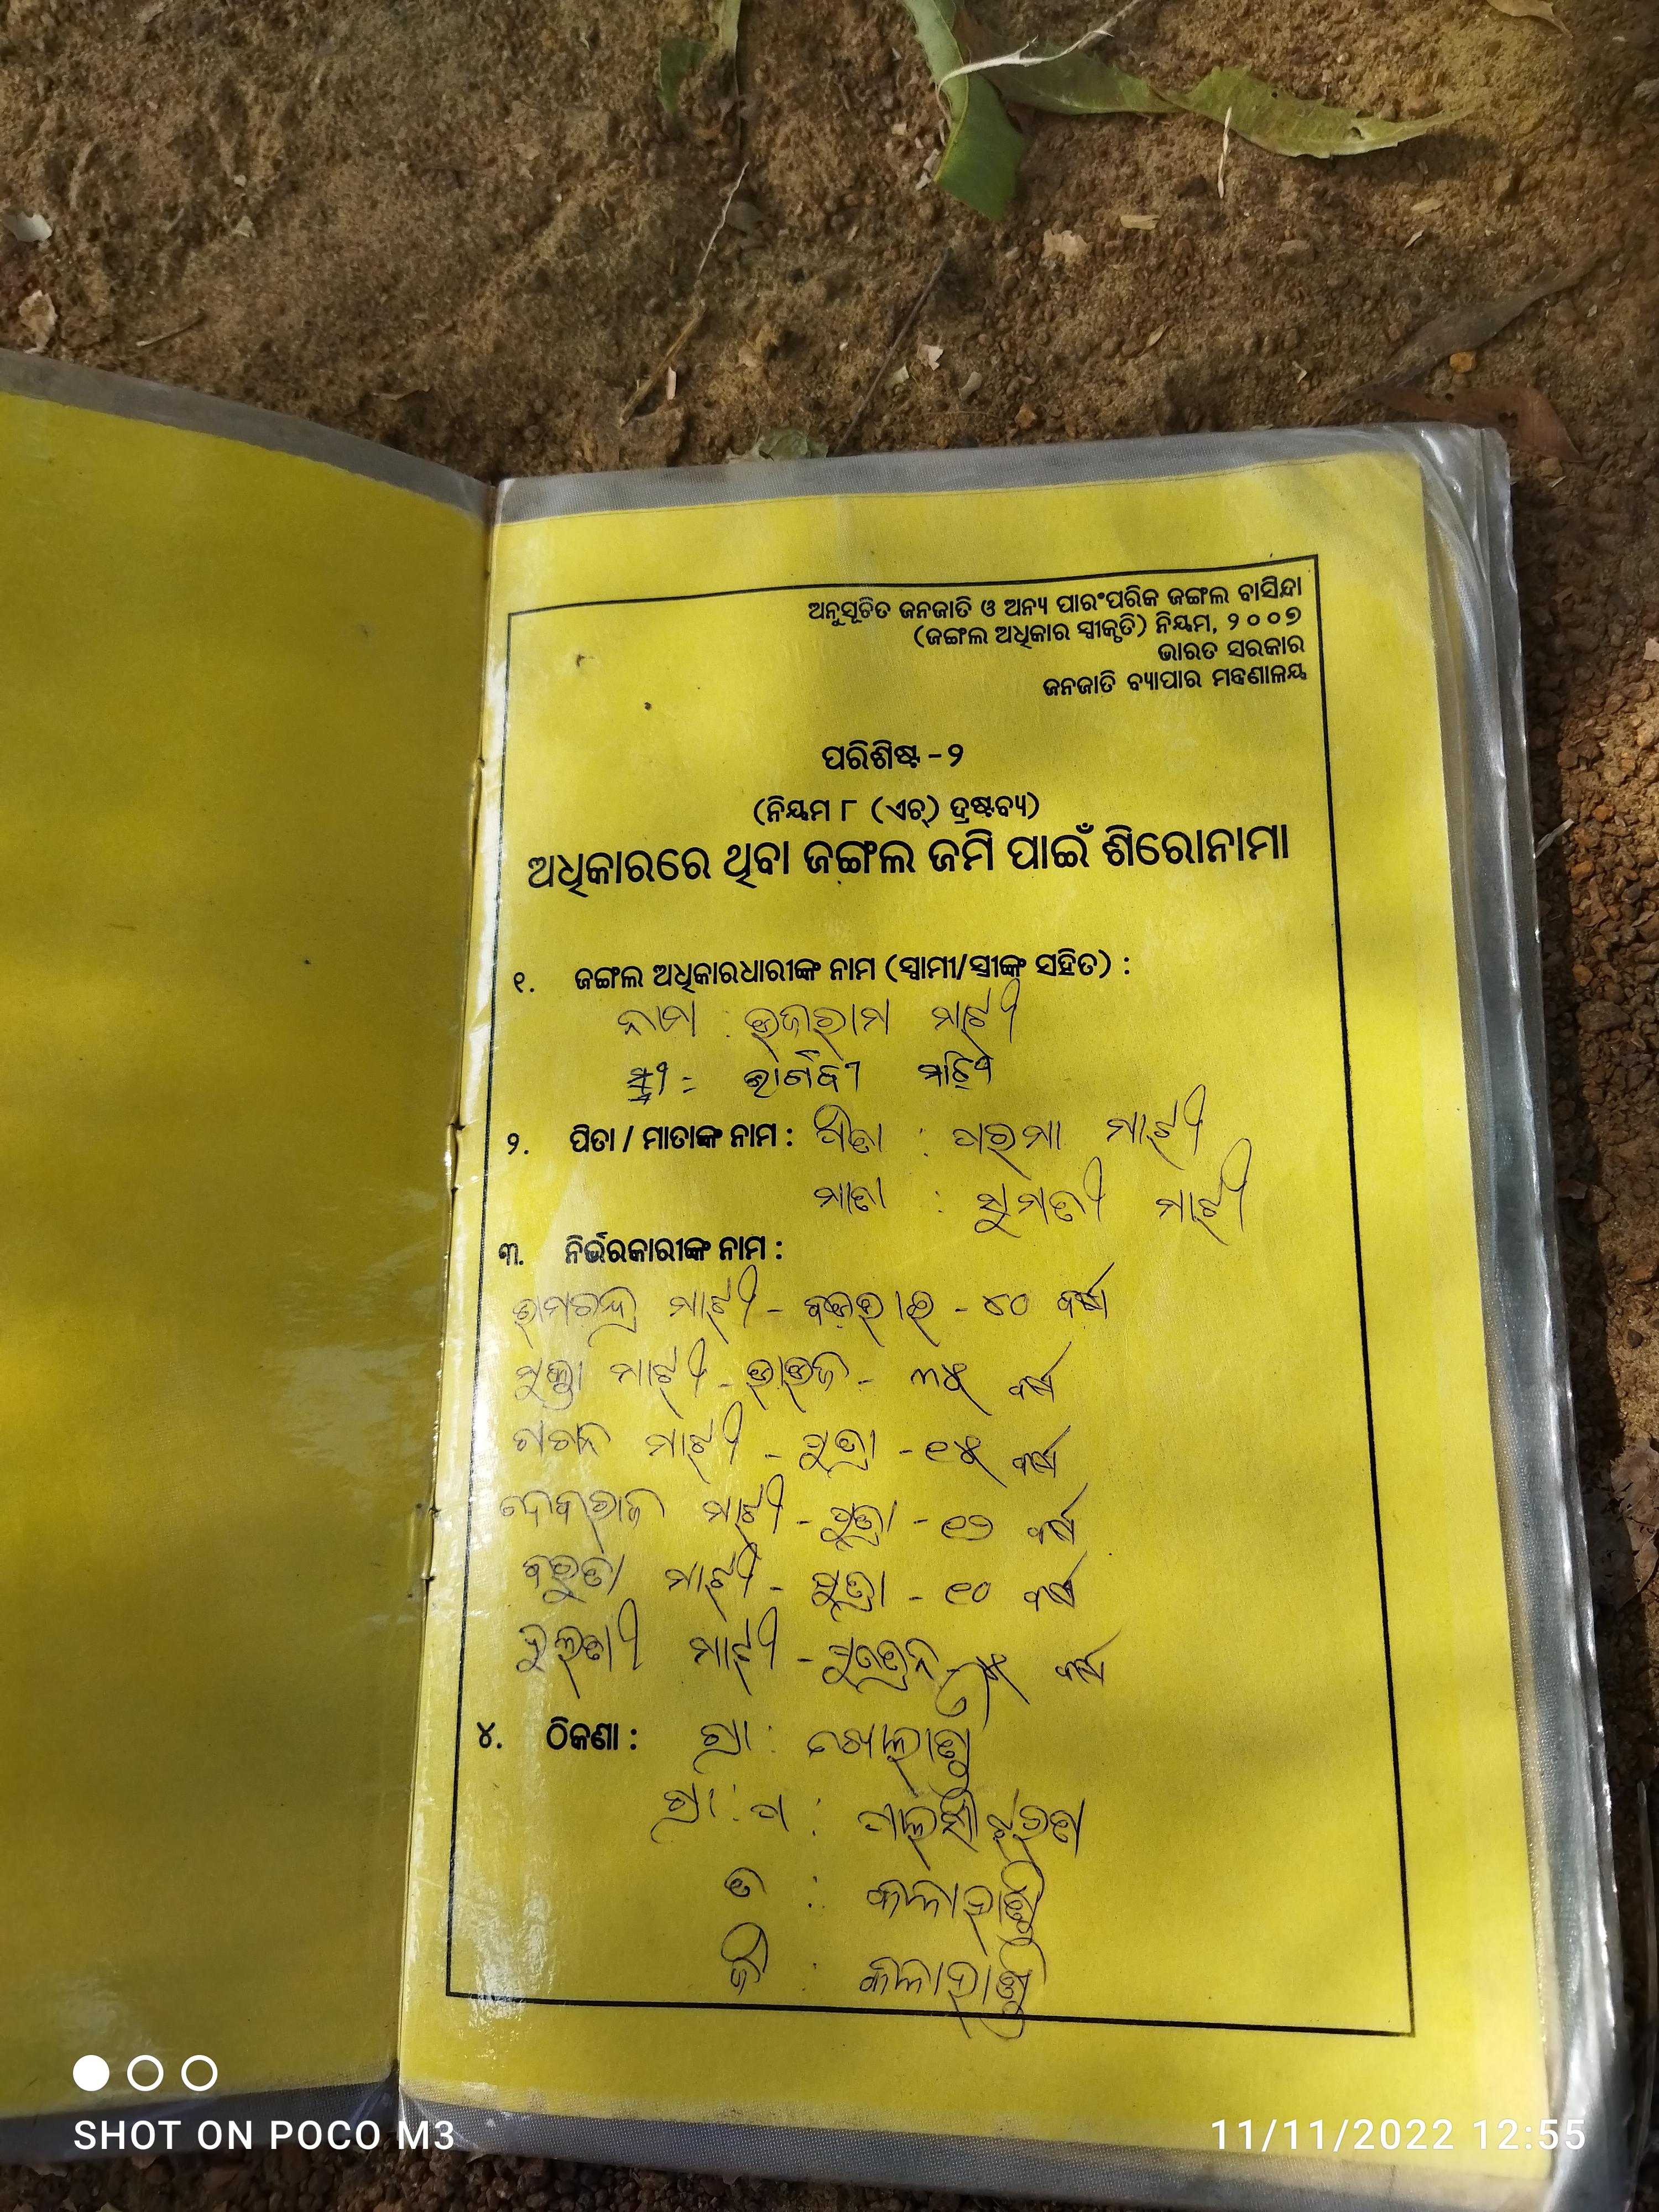 ଅନୁସୂଚିତ ଜନଜାତି ଓ ଅନ୍ୟ ପାରଂପରିକ ଜଙ୍ଗଲ ବାସିନ୍ଦା
(ଜଙ୍ଗଲ ଅଧିକାର ସ୍ୱୀକୃତି) ନିୟମ, ୨୦୦୭
ଭାରତ ସରକାର
ଜନଜାତି ବ୍ୟାପାର ମନ୍ତ୍ରଣାଳୟ
ପରିଶିଷ୍ଟ -୨
(ନିୟମ ୮ (ଏଚ୍) ଦ୍ରଷ୍ଟବ୍ୟ)
ଅଧିକାରରେ ଥିବା ଜଙ୍ଗଲ ଜମି ପାଇଁ ଶିରୋନାମା
୧. ଜଙ୍ଗଲ ଅଧିକାରଧାରୀଙ୍କ ନାମ (ସ୍ୱାମୀ/ସ୍ତ୍ରୀଙ୍କ ସହିତ) :
ନାମ : ଭଜରାମ ମାଝୀ
ସ୍ତ୍ରୀ : ମାଝି
୨. ପିତା / ମାତାଙ୍କ ନାମ : ପିତା : ମାଝୀ
ମାତା : ସୁମତୀ ମାଝୀ
୩. ନିର୍ଭରକାରୀଙ୍କ ନାମ :
ରାମଚନ୍ଦ୍ର ମାଝୀ - ବଡ଼ଭାଇ - ୪୦ ବର୍ଷ
ମାଝୀ - ଭାଉଜ - ୩୫ ବର୍ଷ
ଗଗନ ମାଝୀ - ପୁତ୍ରା - ୧୫ ବର୍ଷ
ଦେବରାଜ ମାଝୀ - ପୁତ୍ରା - ୧୨ ବର୍ଷ
ମାଝୀ - ପୁତ୍ରା - ୧୦ ବର୍ଷ
ମାଝୀ - ବର୍ଷ
୪. ଠିକଣା : ଗ୍ରା :
ଗ୍ରା : ପ :
ବ : କଳାହାଣ୍ଡି
ଜି : କଳାହାଣ୍ଡି
SHOT ON POCO M3
11/11/2022 12:55